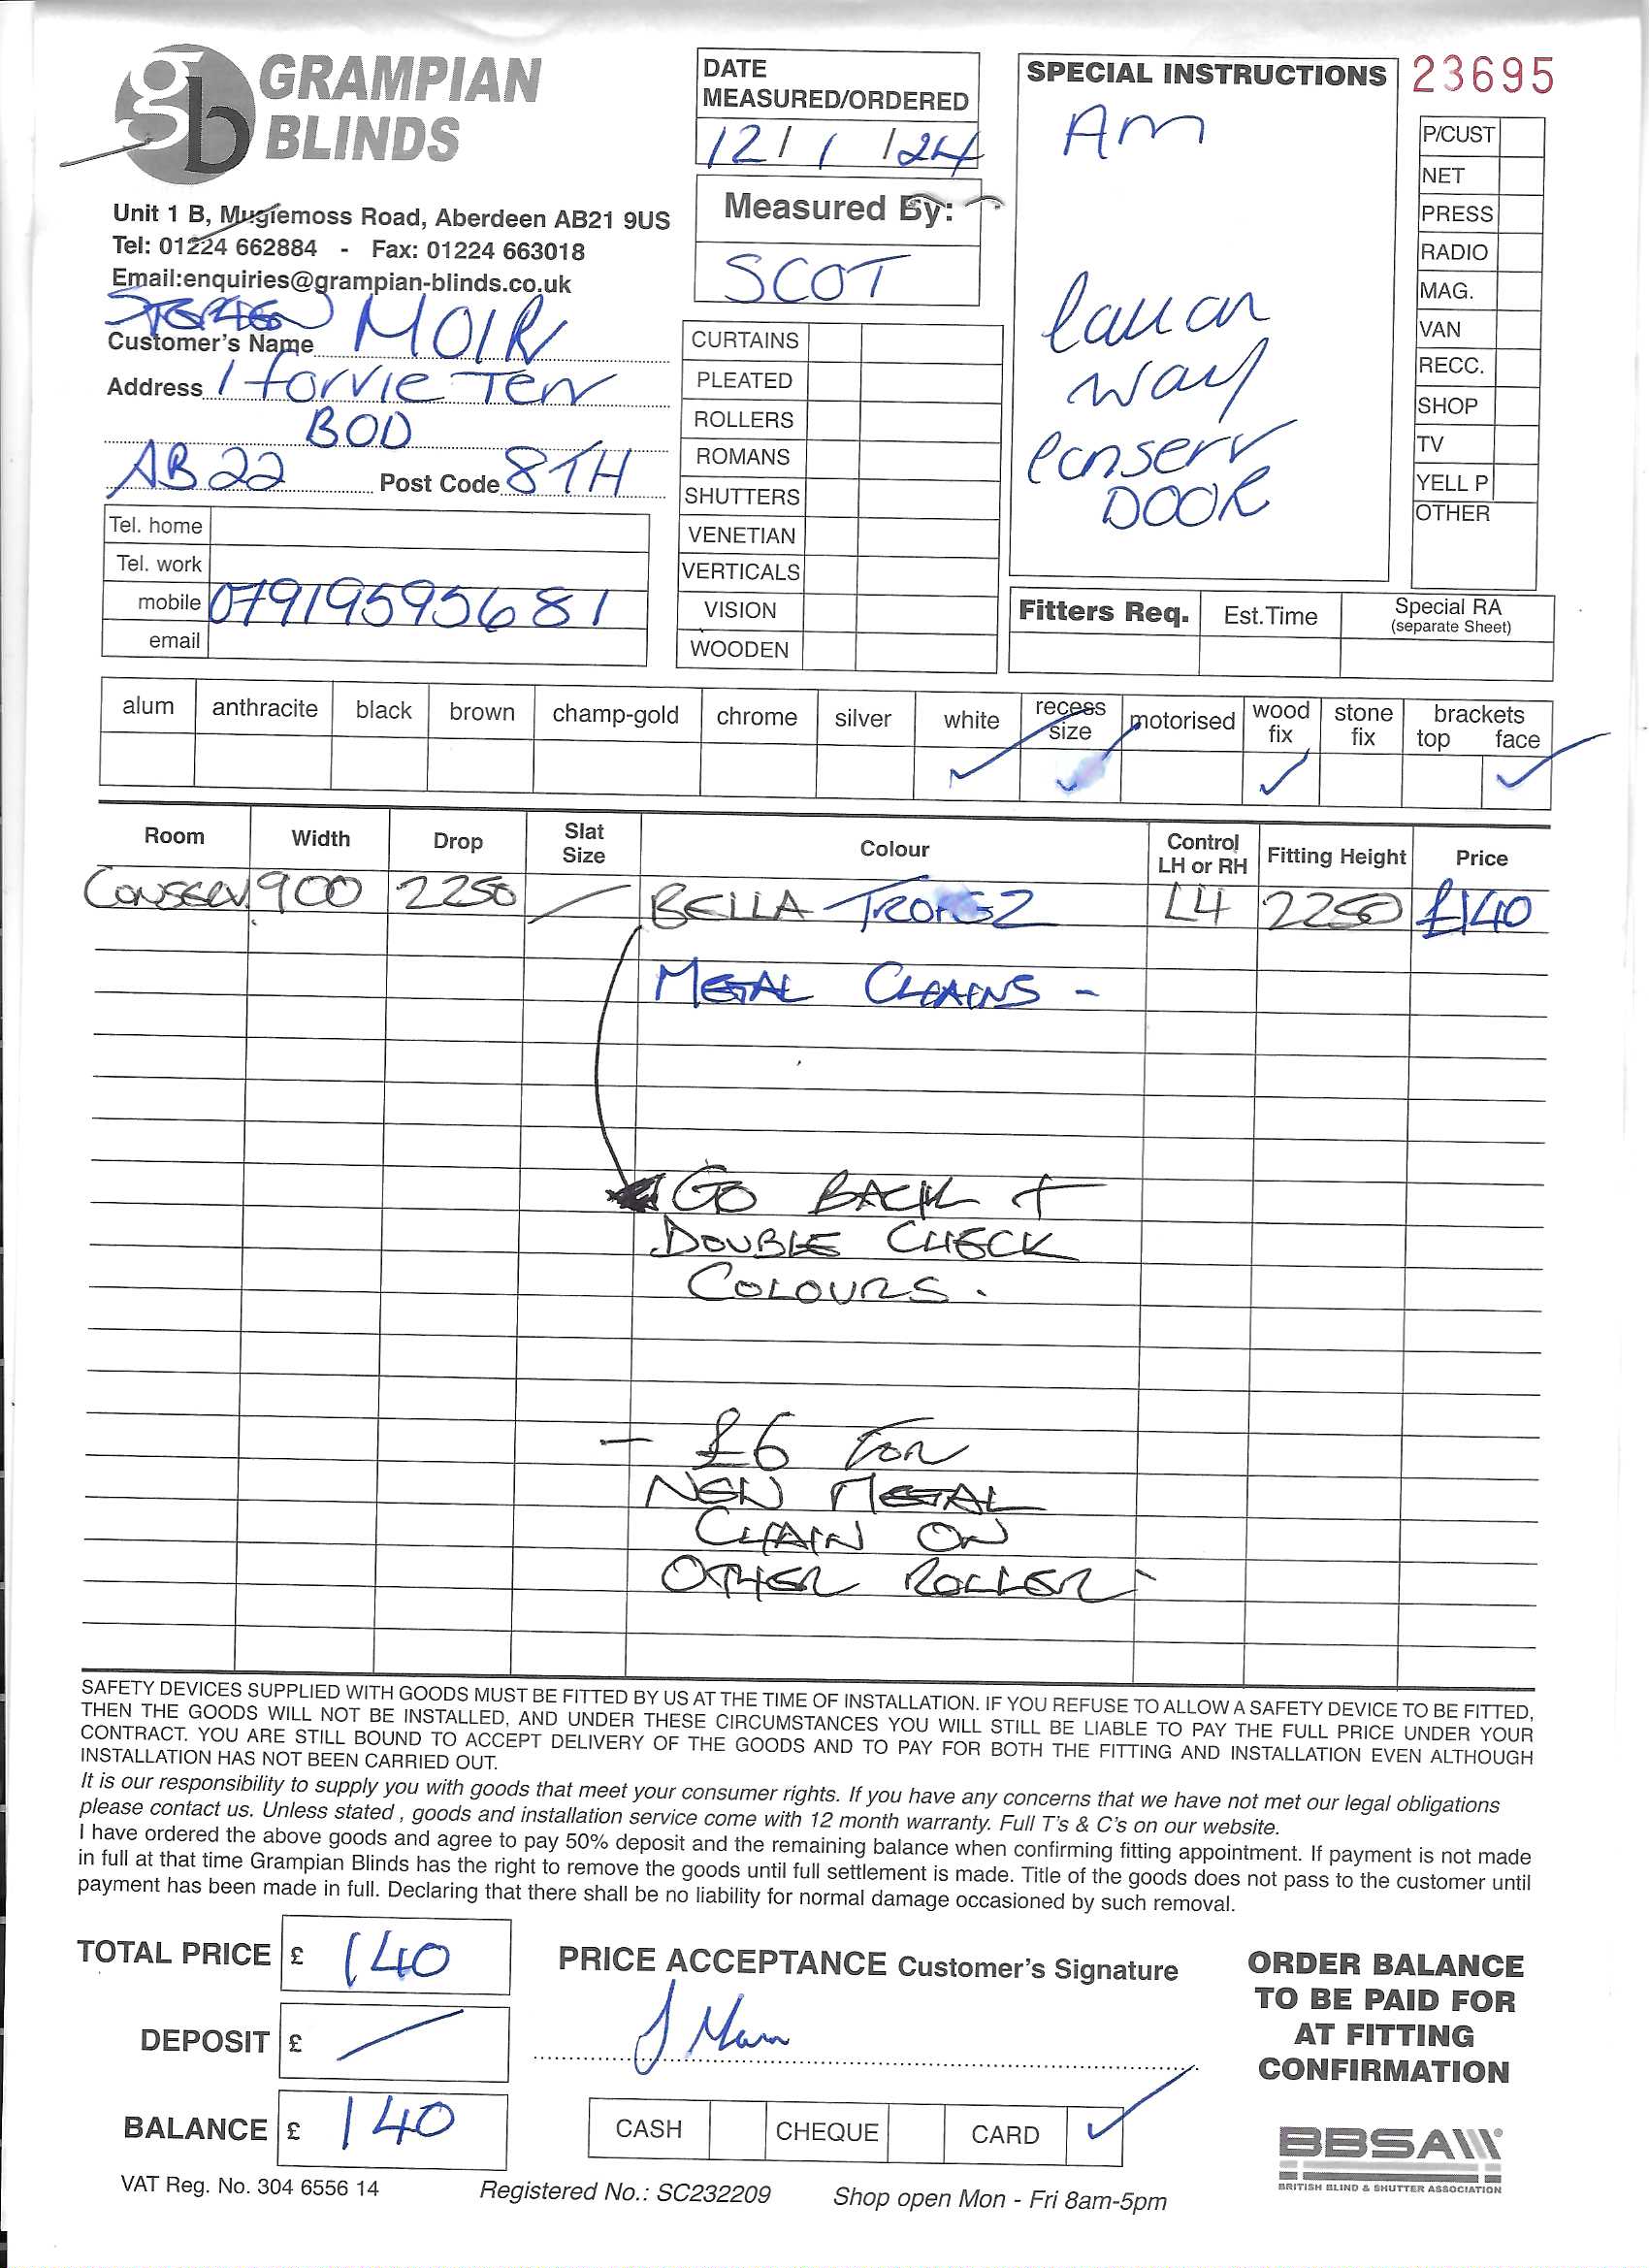 GRAMPIAN
BLINDS
Unit 1 B, Mugiemoss Road, Aberdeen AB21 9US
Tel: 01224 662884 - Fax: 01224 663018
Email:enquiries@grampian-blinds.co.uk
DATE
MEASURED/ORDERED
12/1/24
Measured By:
SCOT
SPECIAL INSTRUCTIONS
AM
way
conserv
DOOR
23695
P/CUST
NET
PRESS
RADIO
MAG.
VAN
RECC.
SHOP
TV
YELL P
OTHER
Customer's Name MOIR
Address 1 forvie Terr
BOD
AB22 Post Code 8TH
Tel. home
Tel. work
mobile 07919595681
email
CURTAINS
PLEATED
ROLLERS
ROMANS
SHUTTERS
VENETIAN
VERTICALS
VISION
WOODEN
Fitters Req. Est.Time Special RA
(separate Sheet)
alum anthracite black brown champ-gold chrome silver white recess size motorised wood fix stone fix brackets top face
Room Width Drop Slat Size Colour Control LH or RH Fitting Height Price
Conserv 900 2250 BELLA LH 2250 £140
METAL CHAINS -
GO BACK +
DOUBLE CHECK
COLOURS.
- £6 FOR
NEW METAL
CHAIN ON
OTHER ROLLER
SAFETY DEVICES SUPPLIED WITH GOODS MUST BE FITTED BY US AT THE TIME OF INSTALLATION. IF YOU REFUSE TO ALLOW A SAFETY DEVICE TO BE FITTED,
THEN THE GOODS WILL NOT BE INSTALLED, AND UNDER THESE CIRCUMSTANCES YOU WILL STILL BE LIABLE TO PAY THE FULL PRICE UNDER YOUR
CONTRACT. YOU ARE STILL BOUND TO ACCEPT DELIVERY OF THE GOODS AND TO PAY FOR BOTH THE FITTING AND INSTALLATION EVEN ALTHOUGH
INSTALLATION HAS NOT BEEN CARRIED OUT.
It is our responsibility to supply you with goods that meet your consumer rights. If you have any concerns that we have not met our legal obligations
please contact us. Unless stated , goods and installation service come with 12 month warranty. Full T's & C's on our website.
I have ordered the above goods and agree to pay 50% deposit and the remaining balance when confirming fitting appointment. If payment is not made
in full at that time Grampian Blinds has the right to remove the goods until full settlement is made. Title of the goods does not pass to the customer until
payment has been made in full. Declaring that there shall be no liability for normal damage occasioned by such removal.
TOTAL PRICE £ 140
DEPOSIT £
BALANCE £ 140
PRICE ACCEPTANCE Customer's Signature
CASH CHEQUE CARD
ORDER BALANCE
TO BE PAID FOR
AT FITTING
CONFIRMATION
BBSA
BRITISH BLIND & SHUTTER ASSOCIATION
VAT Reg. No. 304 6556 14 Registered No.: SC232209 Shop open Mon - Fri 8am-5pm